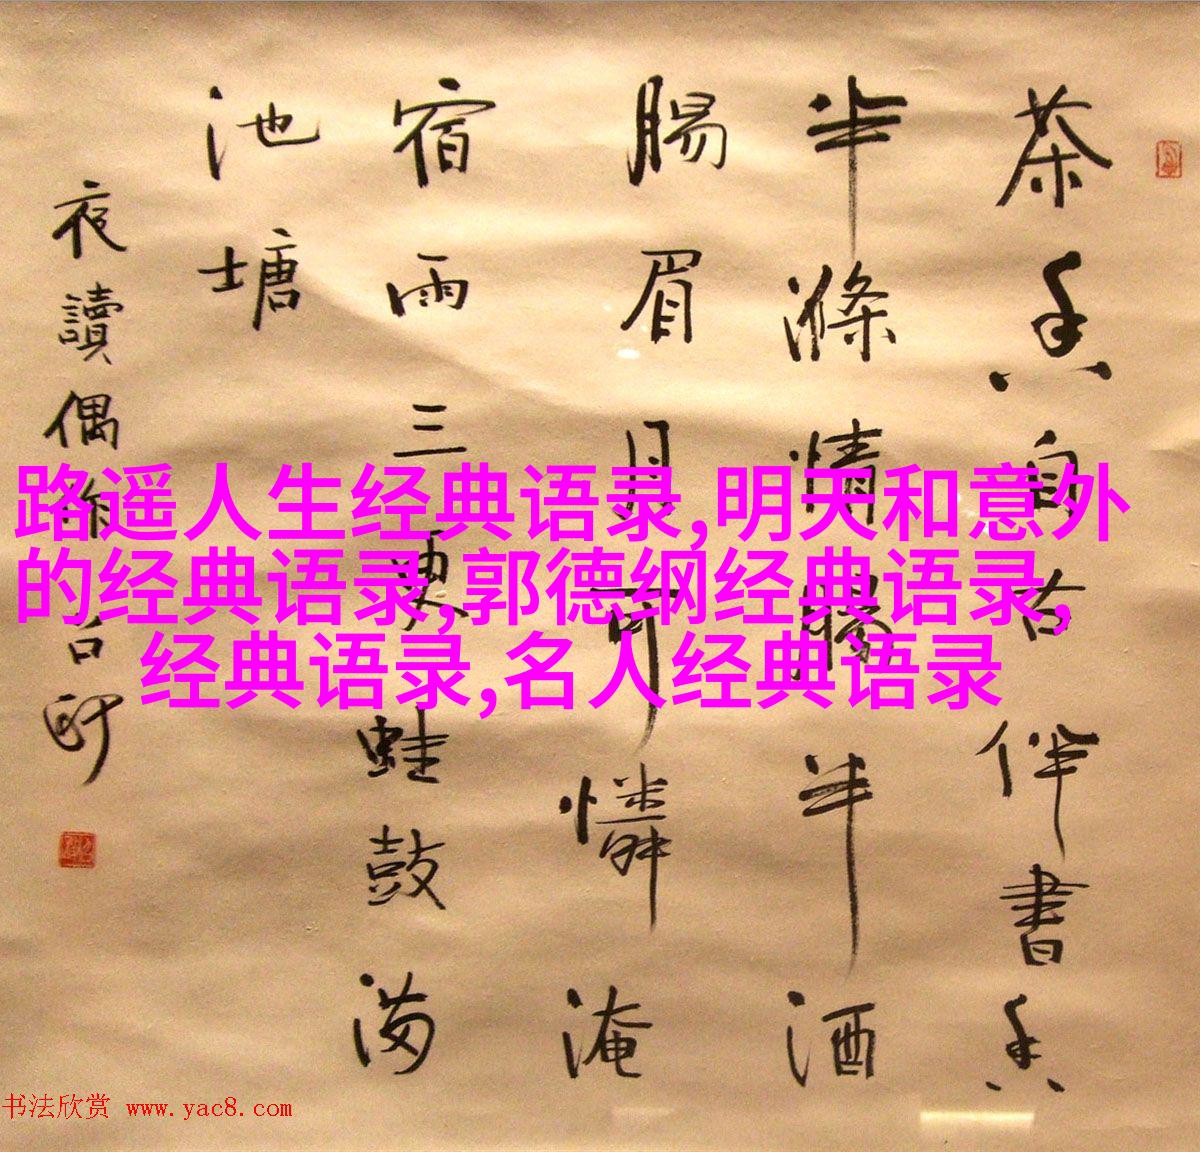 茶香自古伴書香
半滌情腸半酒
腸眉月可憐淹
宿雨三更蛙鼓满
池塘
夜讀偶作
路遥人生经典语录,明天和意外
的经典语录,郭德纲经典语录,
经典语录,名人经典语录
书法欣赏 www.yac8.com